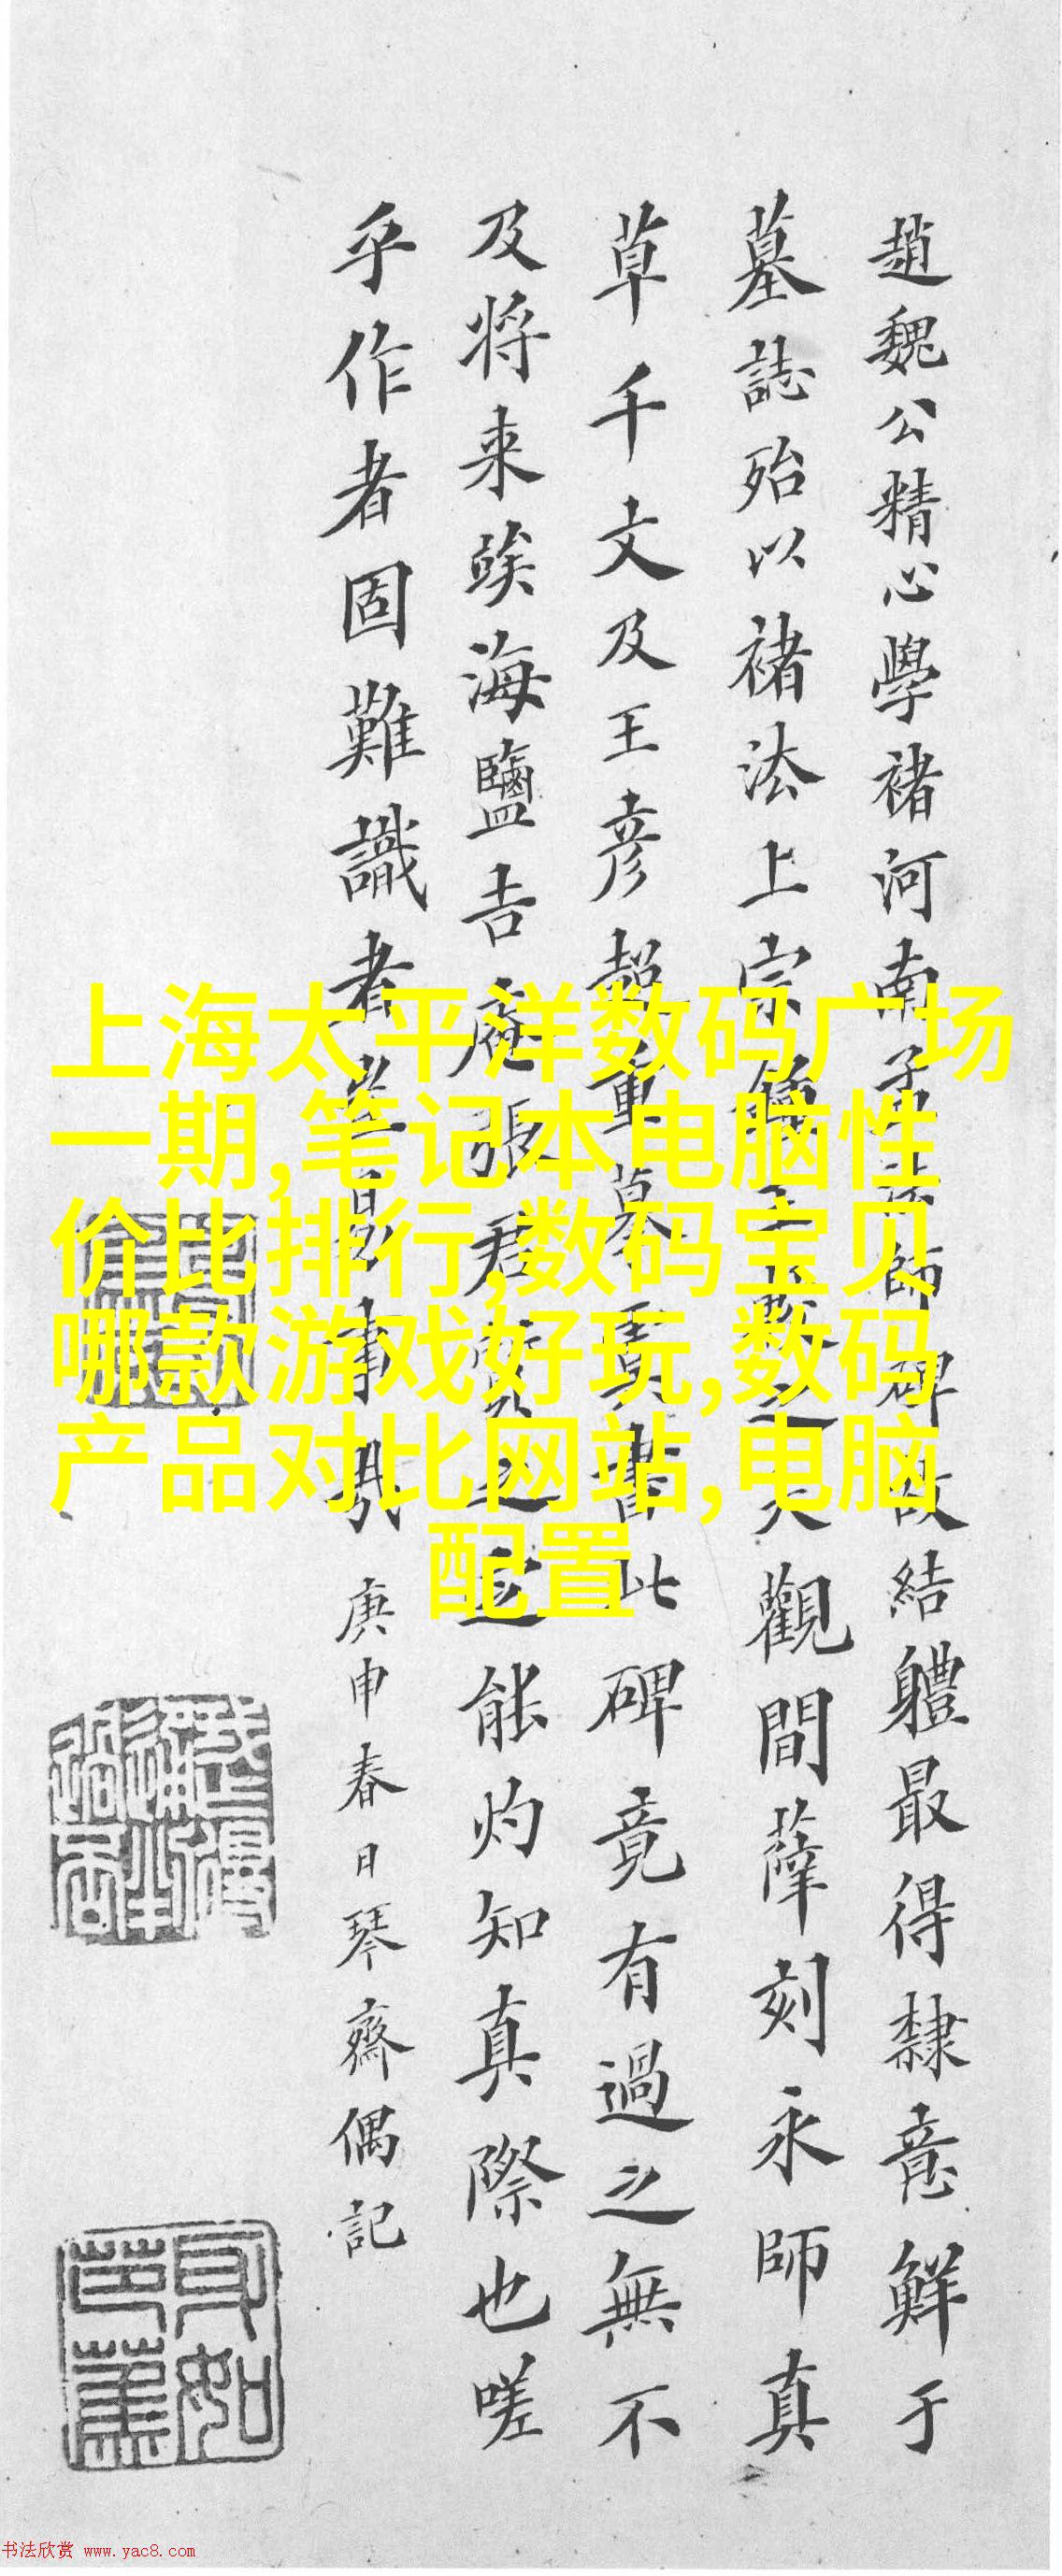 趙魏公精心學褚河南孟法師碑故結軆最得隸意鮮于
墓誌殆以褚法上宗鍾王之大觀間薛刻永師真
草千文及王彦超重摹虞書此碑竟有過之無不
及将来竢海鹽吉庵張君能灼知真際也嗟
乎作者固難識者豈易事哉庚申春日琴齋偶記
上海太平洋数码广场
一期,笔记本电脑性
价比排行,数码宝贝
哪款游戏好玩,数码
产品对比网站,电脑
配置
书法欣赏 www.yac8.com